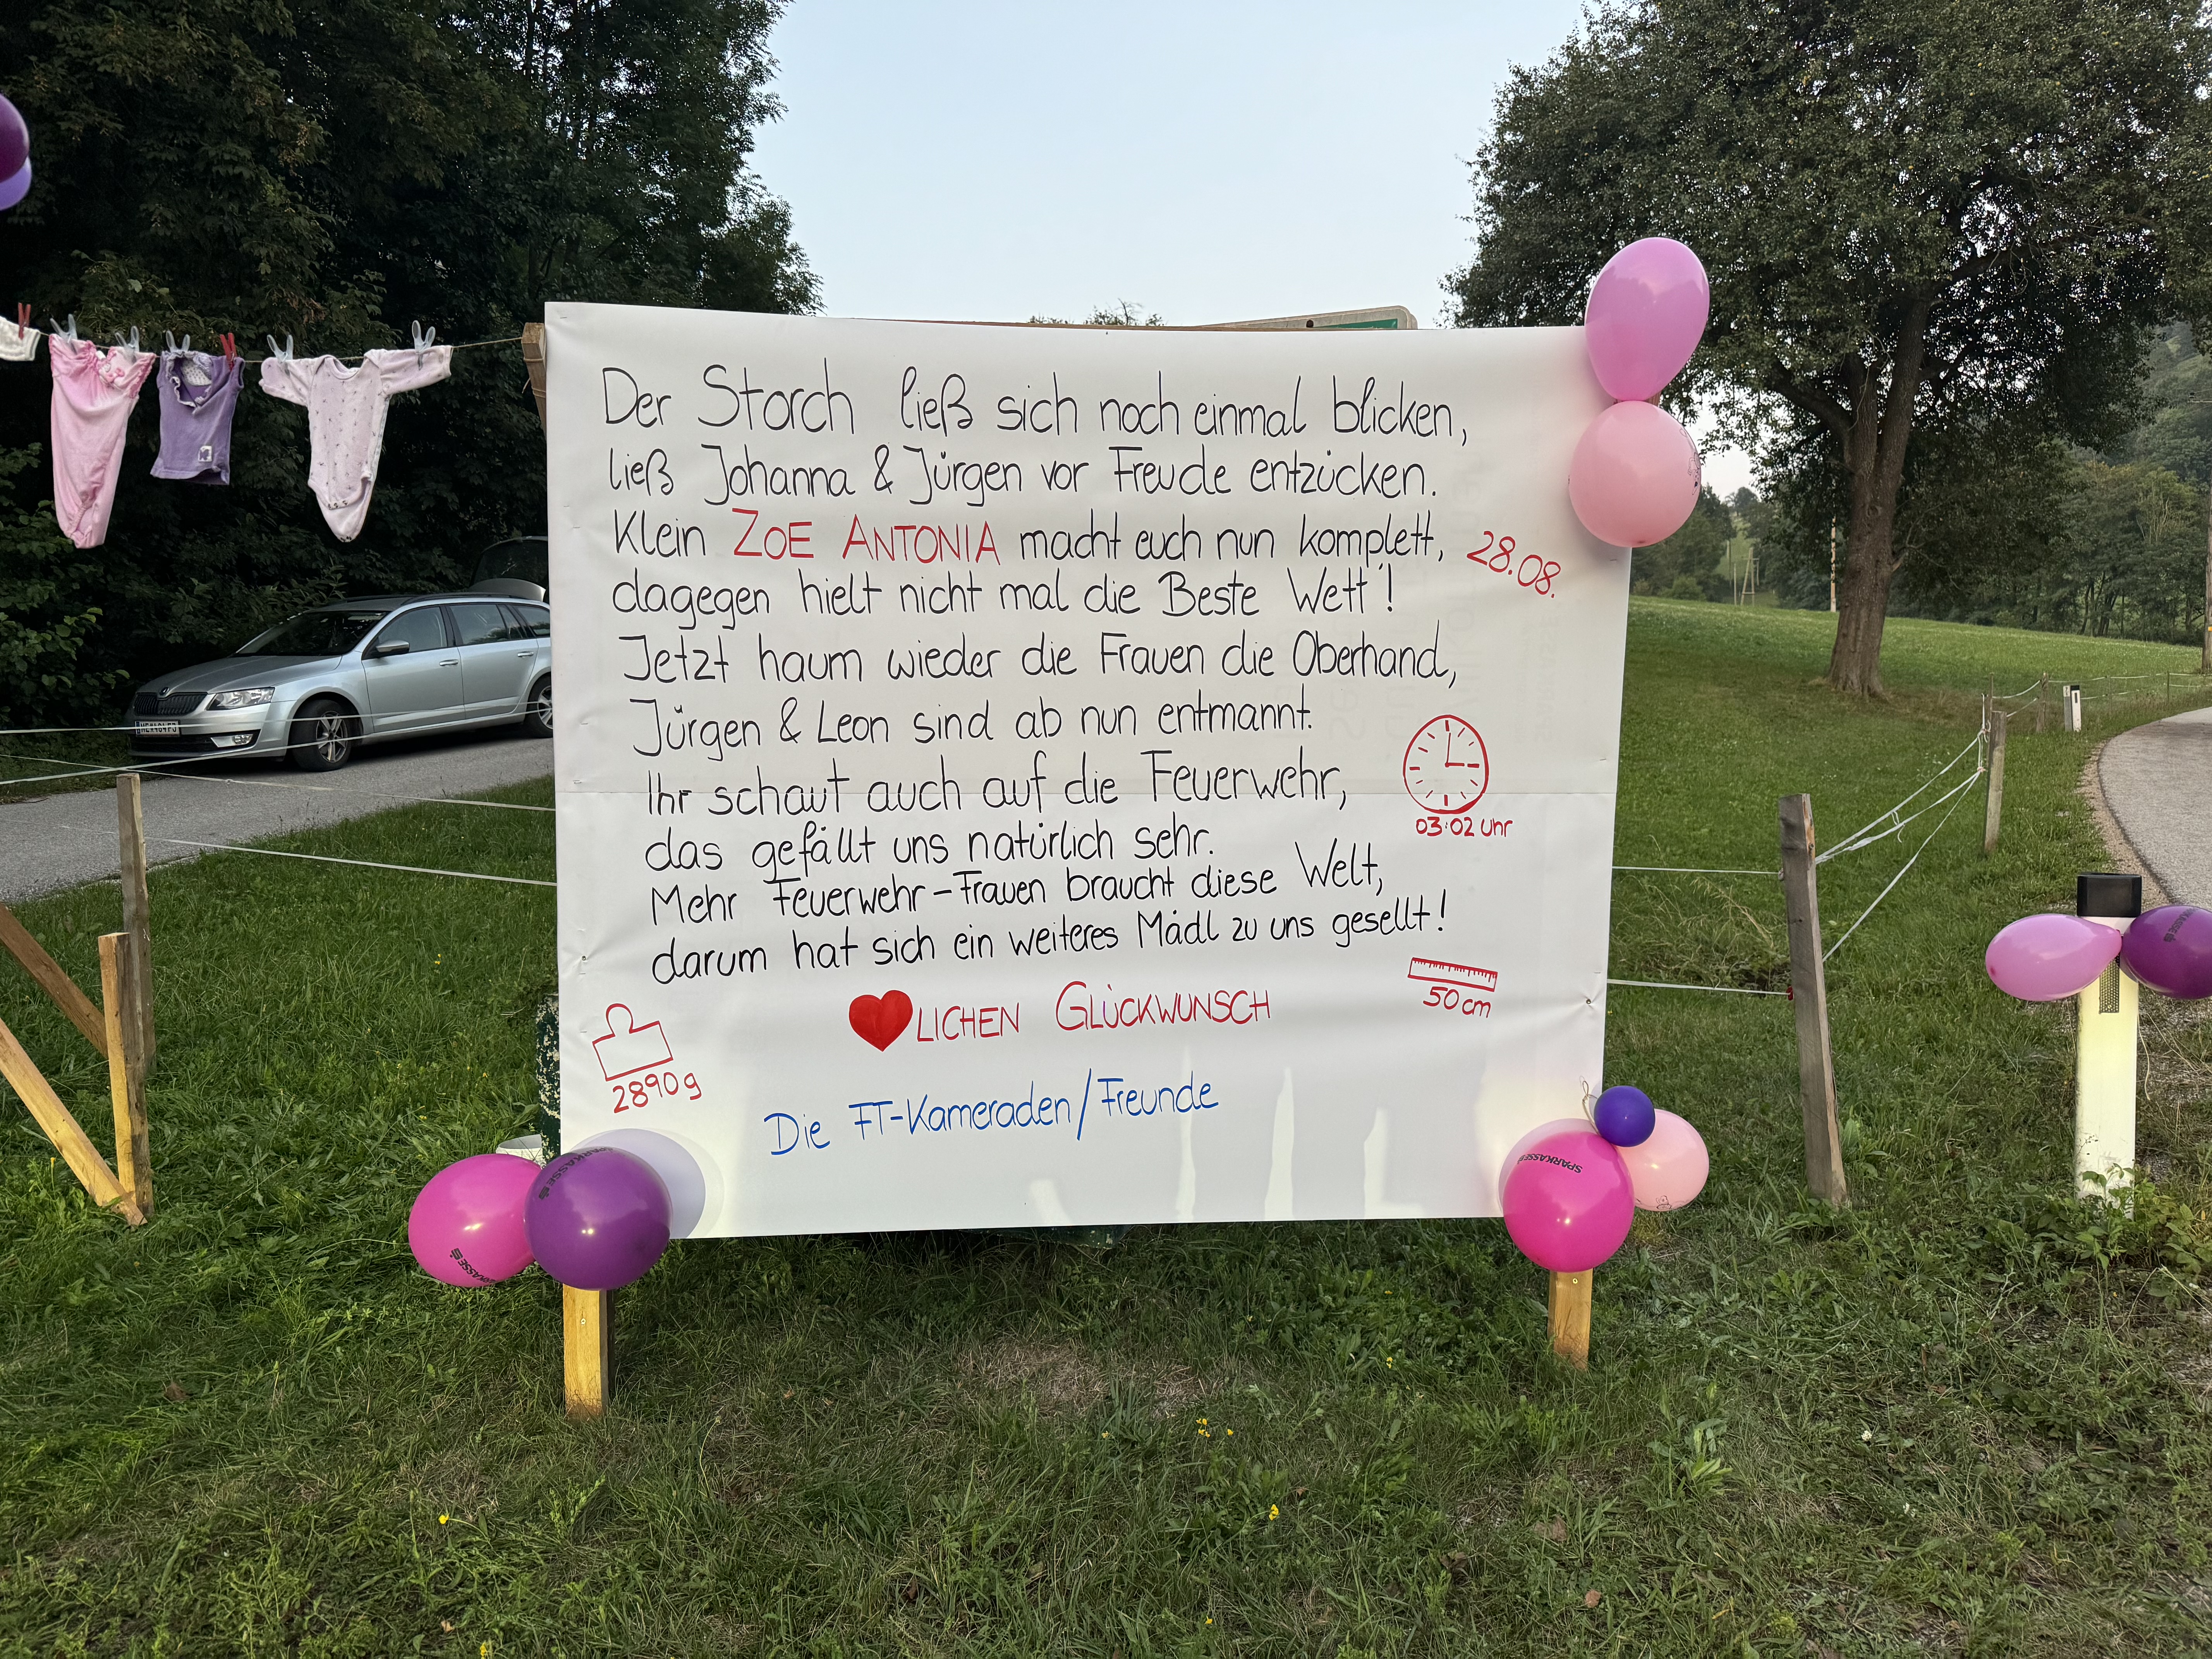 Der Storch ließ sich noch einmal blicken,
ließ Johanna & Jürgen vor Freude entzücken.
Klein ZOE ANTONIA macht euch nun komplett,
28.08.
dagegen hielt nicht mal die Beste Wett'!
Jetzt haum wieder die Frauen die Oberhand,
Jürgen & Leon sind ab nun entmannt.
Ihr schaut auch auf die Feuerwehr,
03:02 Uhr
das gefällt uns natürlich sehr.
Mehr Feuerwehr-Frauen braucht diese Welt,
darum hat sich ein weiteres Mädl zu uns gesellt!
50 cm
LICHEN GLÜCKWUNSCH
2890g
Die FT-Kameraden/Freunde
SPARKASSE
SPARKASSE
SPARKASSE
SPARKASSE